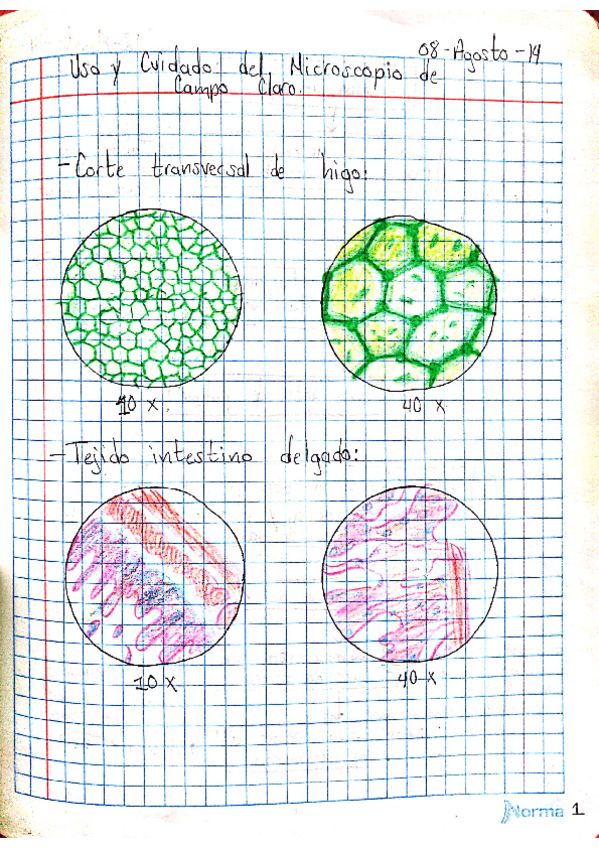 08-Agosto-19
Uso y Cuidado del Microscopio de
Campo Claro.
-Corte transversal de higo:
10 x.
40 x
-Tejido intestino delgado:
10 x
40 x
Norma 1